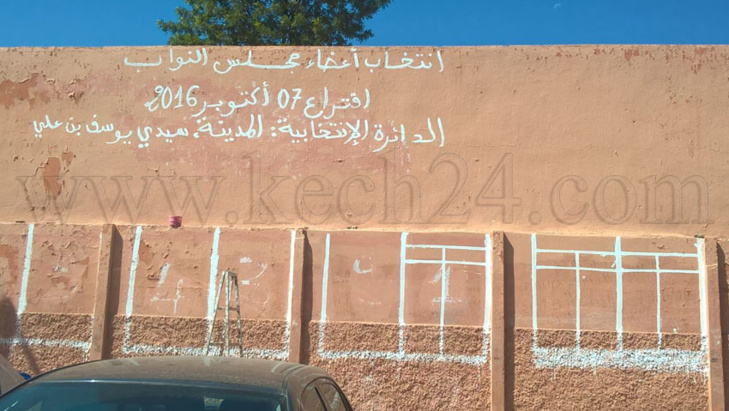 انتخاب أعضاء مجلس النواب
اقتراع 07 أكتوبر 2016
الدائرة الإنتخابية: المدينة، سيدي يوسف بن علي
www.kech24.com